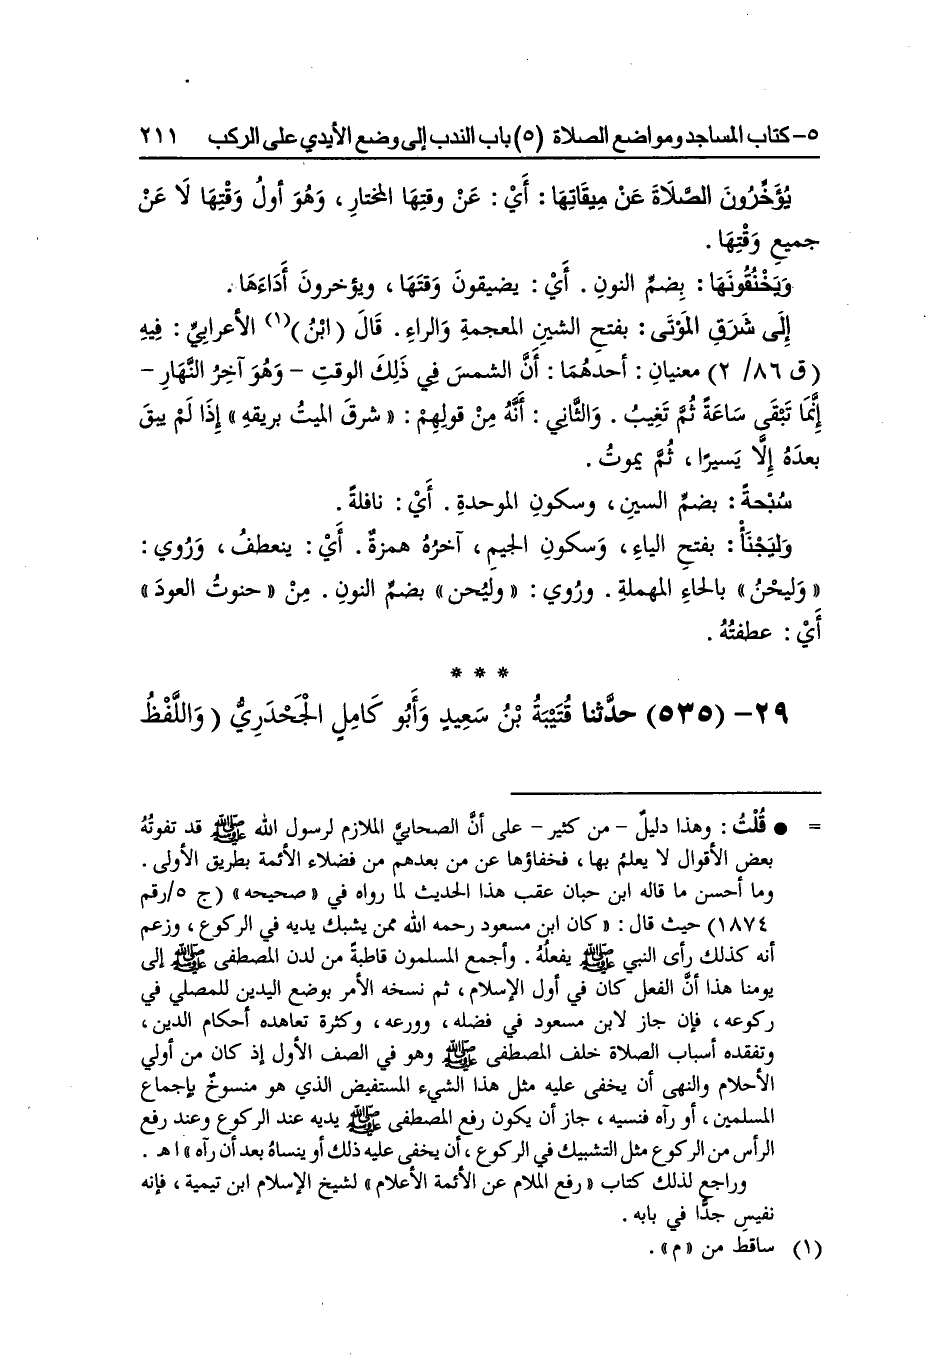 ٥- كتاب المساجد ومواضع الصلاة (٥) باب الندب إلى وضع الأيدي على الركب ٢١١
يُؤَخِّرُونَ الصَّلَاةَ عَنْ مِيقَاتِهَا : أَيْ : عَنْ وقتِهَا المختارِ ، وَهُوَ أولُ وَقْتِهَا لَا عَنْ
جميعِ وَقْتِهَا .
وَيَخْنُقُونَهَا : بِضمِّ النونِ . أَيْ : يضيقونَ وَقتَهَا ، ويؤخرونَ أَدَاءَهَا .
إِلَى شَرَقِ المَوْتَى : بفتحِ الشينِ المعجمةِ وَالراءِ . قَالَ ( ابْنُ )(١) الأعرابيِّ : فِيهِ
(ق ٨٦/ ٢) معنيانِ : أحدهُمَا : أَنَّ الشمسَ فِي ذَلِكَ الوقتِ - وَهُوَ آخِرُ النَّهَارِ -
إِنَّمَا تَبْقَى سَاعَةً ثُمَّ تَغِيبُ . وَالثَّانِي : أَنَّهُ مِنْ قولِهِمْ : « شرقَ الميتُ بريقهِ » إِذَا لَمْ يبقَ
بعدَهُ إِلَّا يَسيرًا ، ثُمَّ يموتُ .
سُبْحةً : بضمِّ السينِ ، وسكونِ الموحدةِ . أَيْ : نافلةً .
وَليَجْنَأْ : بفتحِ الياءِ ، وَسكونِ الجيمِ ، آخرُهُ همزةٌ . أَيْ : ينعطفُ ، وَرُوي :
« وَليحْنُ » بالحاءِ المهملةِ . ورُوي : « وليُحن » بضمِّ النونِ . مِنْ « حنوتُ العودَ »
أَيْ : عطفتُهُ .
* * *
٢٩- (٥٣٥) حدَّثنا قُتَيْبَةُ بْنُ سَعِيدٍ وَأَبُو كَامِلٍ الجَحْدَرِيُّ ( وَاللَّفْظُ
= ● قُلْتُ : وهذا دليلٌ - من كثير - على أنَّ الصحابيَّ الملازم لرسول الله ﷺ قد تفوتُهُ
بعض الأقوال لا يعلمُ بها ، فخفاؤها عن من بعدهم من فضلاء الأئمة بطريق الأولى .
وما أحسن ما قاله ابن حبان عقب هذا الحديث لما رواه في « صحيحه » (ج ٥/رقم
١٨٧٤) حيث قال : « كان ابن مسعود رحمه الله ممن يشبك يديه في الركوع ، وزعم
أنه كذلك رأى النبي ﷺ يفعلُهُ . وأجمع المسلمون قاطبةً من لدن المصطفى ﷺ إلى
يومنا هذا أنَّ الفعل كان في أول الإسلام ، ثم نسخه الأمر بوضع اليدين للمصلي في
ركوعه ، فإن جاز لابن مسعود في فضله ، وورعه ، وكثرة تعاهده أحكام الدين ،
وتفقده أسباب الصلاة خلف المصطفى ﷺ وهو في الصف الأول إذ كان من أولي
الأحلام والنهى أن يخفى عليه مثل هذا الشيء المستفيض الذي هو منسوخٌ بإجماع
المسلمين ، أو رآه فنسيه ، جاز أن يكون رفع المصطفى ﷺ يديه عند الركوع وعند رفع
الرأس من الركوع مثل التشبيك في الركوع ، أن يخفى عليه ذلك أو ينساهُ بعد أن رآه » اهـ .
وراجع لذلك كتاب « رفع الملام عن الأئمة الأعلام » لشيخ الإسلام ابن تيمية ، فإنه
نفيس جدًّا في بابه .
(١) ساقط من « م » .